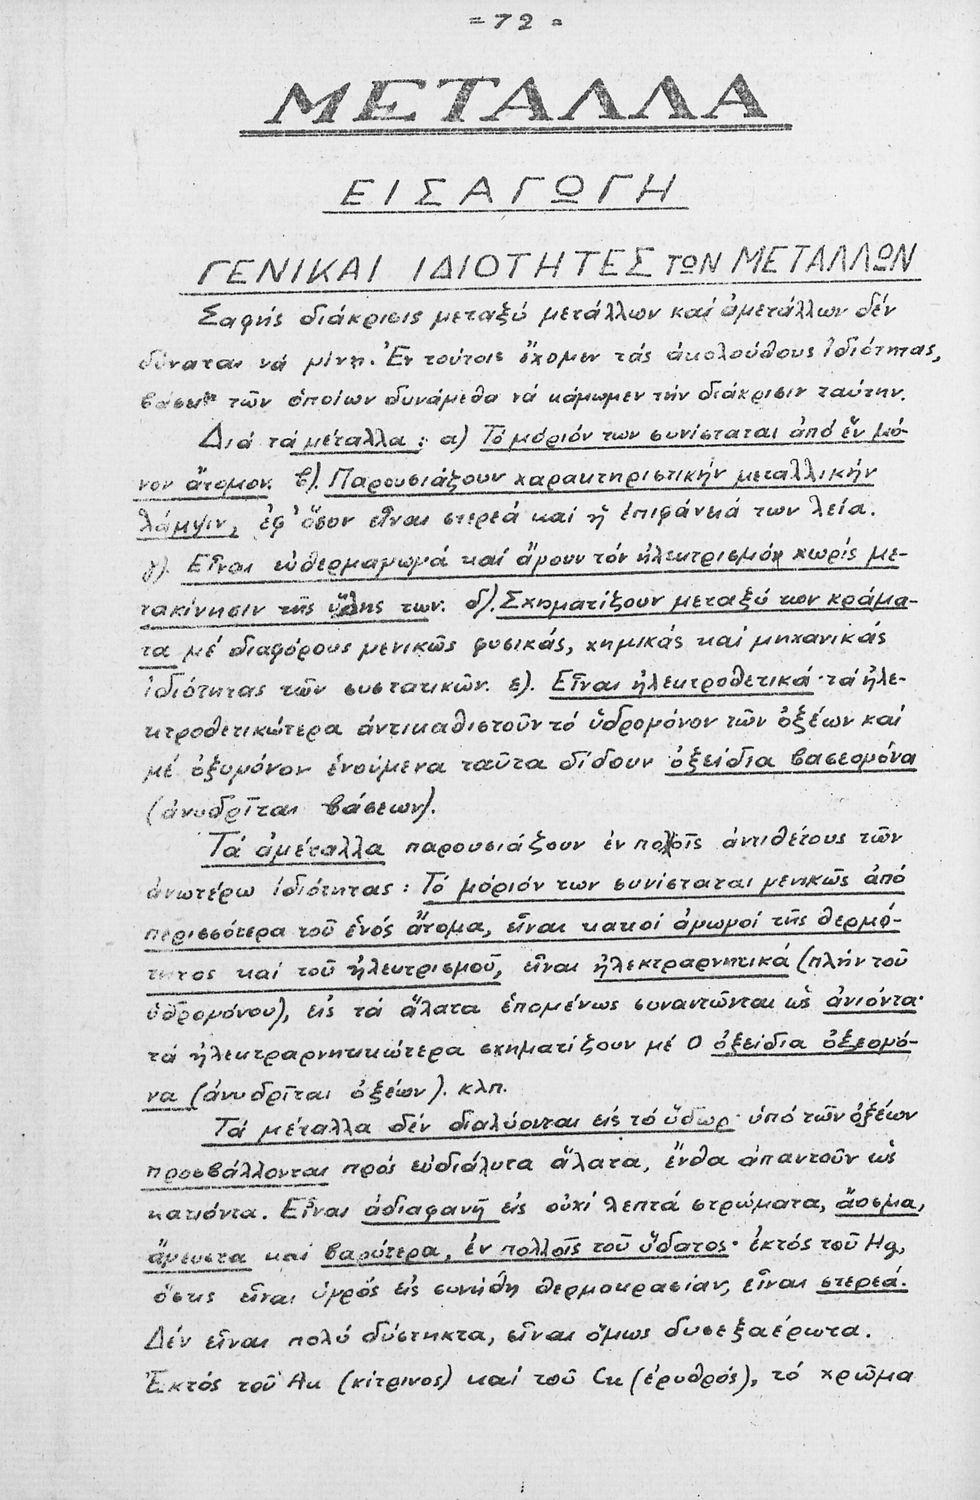 = 72 =
ΜΕΤΑΛΛΑ
ΕΙΣΑΓΩΓΗ
ΓΕΝΙΚΑΙ ΙΔΙΟΤΗΤΕΣ ΤΩΝ ΜΕΤΑΛΛΩΝ
Σαφής διάκρισις μεταξύ μετάλλων καί ἀμετάλλων δέν
δύναται νά γίνῃ. Ἐν τούτοις ἔχομεν τάς ἀκολούθους ἰδιότητας,
βάσει τῶν ὁποίων δυνάμεθα νά κάμωμεν τήν διάκρισιν ταύτην.
Διά τά μέταλλα: α) Τό μόριόν των συνίσταται ἀπό ἕν μό-
νον ἄτομον. β). Παρουσιάζουν χαρακτηριστικήν μεταλλικήν
λάμψιν, ἐφ' ὅσον εἶναι στερεά καί ἡ ἐπιφάνειά των λεία.
γ). Εἶναι εὐθερμαγωγά καί ἄγουν τόν ἠλεκτρισμόν χωρίς με-
τακίνησιν τῆς ὕλης των. δ). Σχηματίζουν μεταξύ των κράμα-
τα μέ διαφόρους γενικῶς φυσικάς, χημικάς καί μηχανικάς
ἰδιότητας τῶν συστατικῶν. ε). Εἶναι ἠλεκτροθετικά· τά ἠλε-
κτροθετικώτερα ἀντικαθιστοῦν τό ὑδρογόνον τῶν ὀξέων καί
μέ ὀξυγόνον ἑνούμενα ταῦτα δίδουν ὀξείδια βασεογόνα
(ἀνυδρῖται βάσεων).
Τά ἀμέταλλα παρουσιάζουν ἐν πολλοῖς ἀντιθέτους τῶν
ἀνωτέρω ἰδιότητας: Τό μόριόν των συνίσταται γενικῶς ἀπό
περισσότερα τοῦ ἑνός ἄτομα, εἶναι κακοί ἀγωγοί τῆς θερμό-
τητος καί τοῦ ἠλεκτρισμοῦ, εἶναι ἠλεκτραρνητικά (πλήν τοῦ
ὑδρογόνου), εἰς τά ἅλατα ἑπομένως συναντῶνται ὡς ἀνιόντα·
τά ἠλεκτραρνητικώτερα σχηματίζουν μέ Ο ὀξείδια ὀξεογό-
να (ἀνυδρῖται ὀξέων). κλπ.
Τά μέταλλα δέν διαλύονται εἰς τό ὕδωρ· ὑπό τῶν ὀξέων
προσβάλλονται πρός εὐδιάλυτα ἅλατα, ἔνθα ἀπαντοῦν ὡς
κατιόντα. Εἶναι ἀδιαφανῆ εἰς οὐχί λεπτά στρώματα, ἄοσμα,
ἄγευστα καί βαρύτερα, ἐν πολλοῖς τοῦ ὕδατος· ἐκτός τοῦ Hg,
ὅστις εἶναι ὑγρός εἰς συνήθη θερμοκρασίαν, εἶναι στερεά.
Δέν εἶναι πολύ δύστηκτα, εἶναι ὅμως δυσεξαέρωτα.
Ἐκτός τοῦ Au (κίτρινος) καί τοῦ Cu (ἐρυθρός), τό χρῶμα